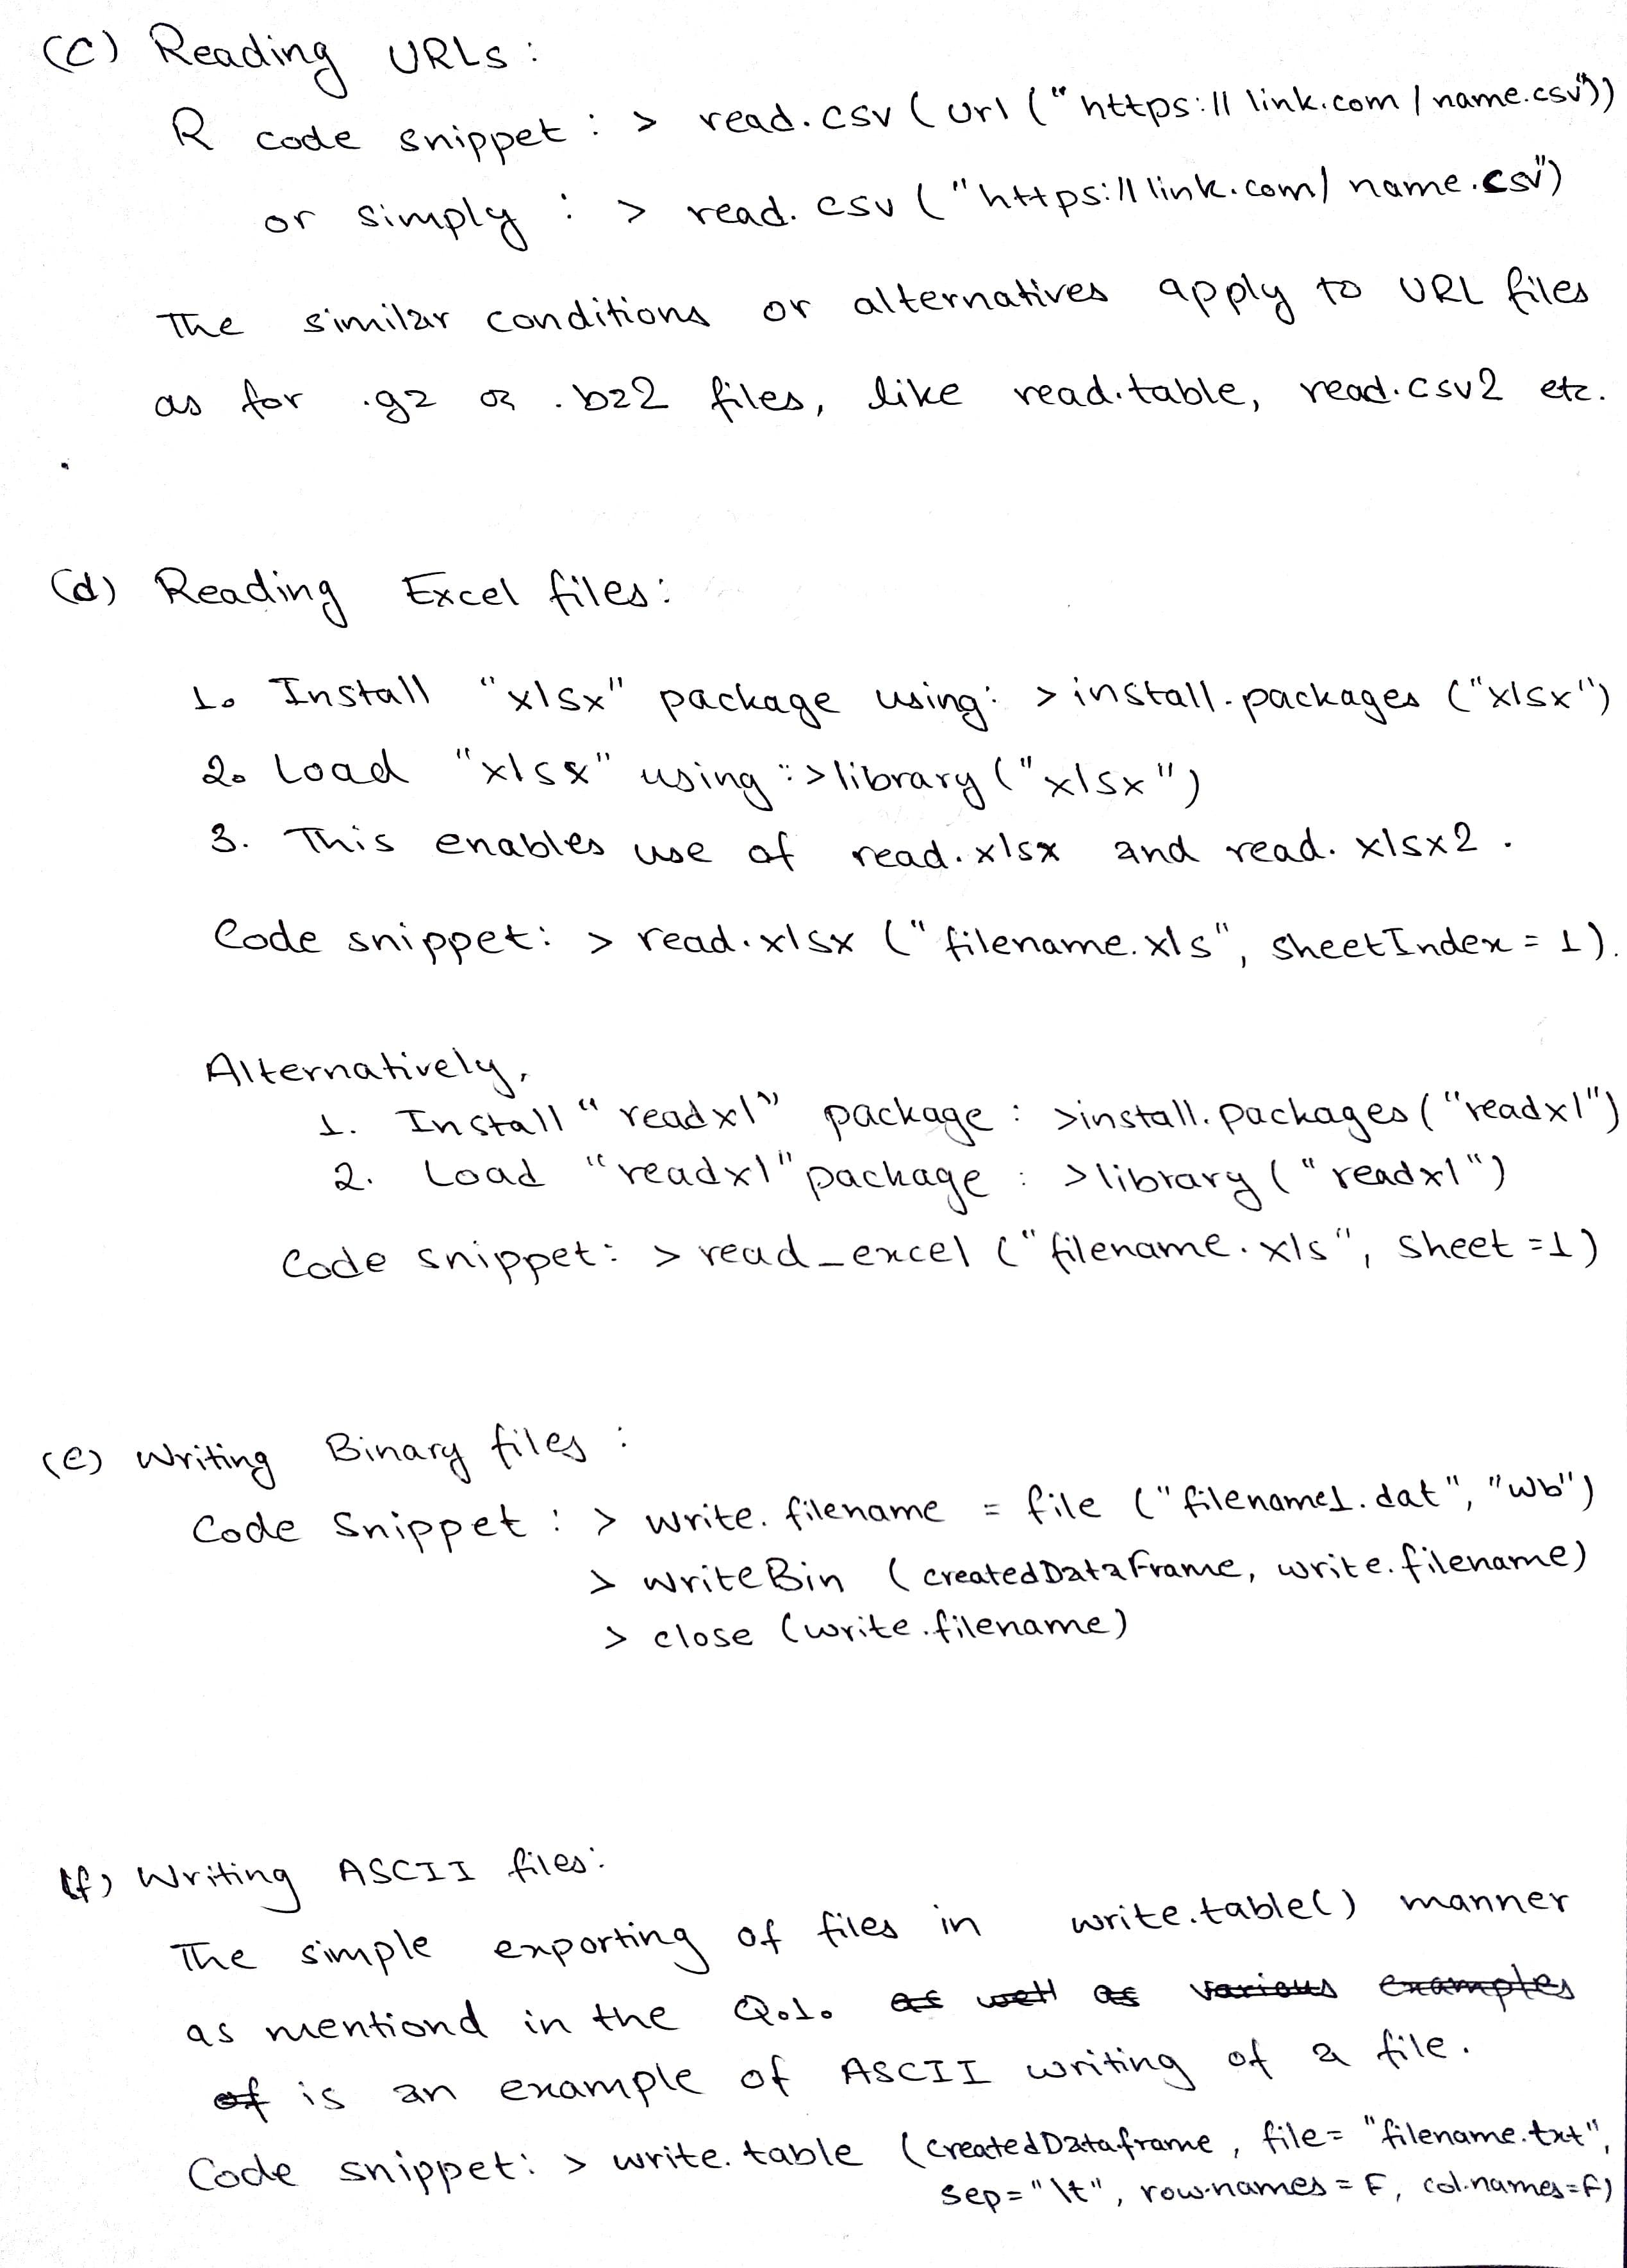 (c) Reading URLs :
R code snippet : > read.csv (url ("https://link.com/name.csv"))
or simply : > read.csv ("https://link.com/name.csv")
The similar conditions or alternatives apply to URL files
as for .gz or .bz2 files, like read.table, read.csv2 etc.
(d) Reading Excel files:
1. Install "xlsx" package using: > install.packages ("xlsx")
2. Load "xlsx" using :> library ("xlsx")
3. This enables use of read.xlsx and read.xlsx2.
Code snippet: > read.xlsx ("filename.xls", sheetIndex = 1).
Alternatively,
1. Install "readxl" package : >install.packages ("readxl")
2. Load "readxl" package : >library ("readxl")
Code snippet: > read_excel ("filename.xls", sheet =1)
(e) Writing Binary files :
Code Snippet : > write.filename = file ("filename1.dat", "wb")
> writeBin (createdDataFrame, write.filename)
> close (write.filename)
(f) Writing ASCII files:
The simple exporting of files in write.table() manner
as mentiond in the Q.1. as well as various examples
of is an example of ASCII writing of a file.
Code snippet: > write.table (createdDataframe, file= "filename.txt",
sep="\t", row.names = F, col.names=F)